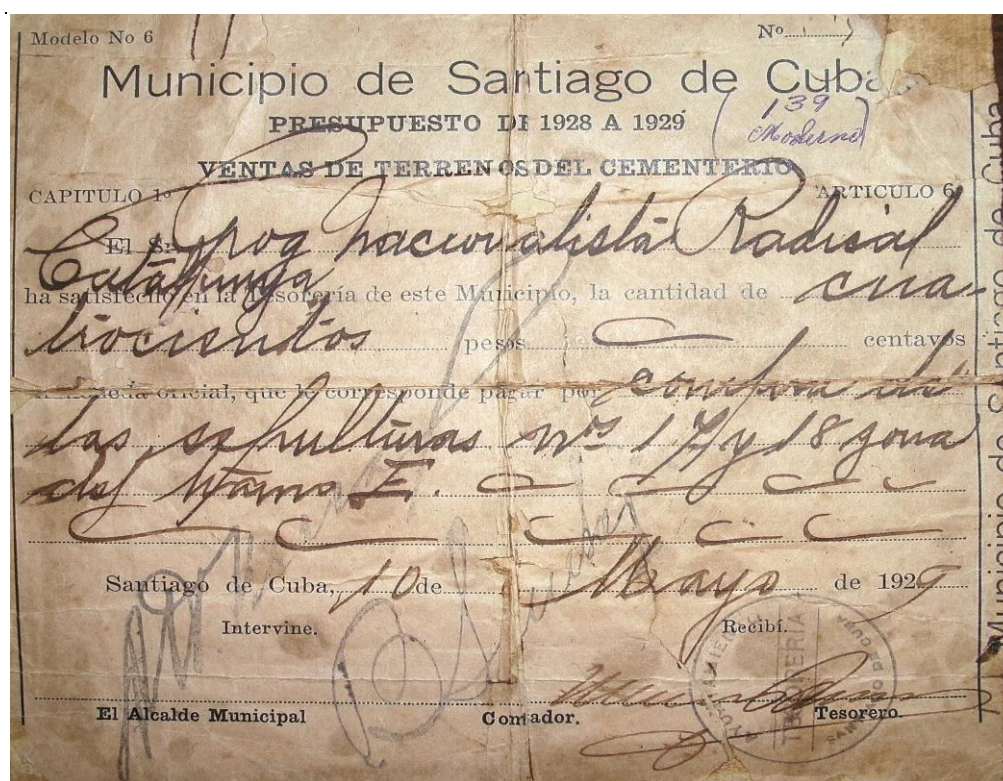 Modelo No 6
Nº
Municipio de Santiago de Cuba
PRESUPUESTO DE 1928 A 1929
(139
Moderno)
VENTAS DE TERRENOS DEL CEMENTERIO
CAPITULO 1º ARTICULO 6
El Sr. Grog Nacionalista Radical
Catalunya
ha satisfecho en la Tesorería de este Municipio, la cantidad de cua-
trocientos pesos centavos
moneda oficial, que le corresponde pagar por compra de
las sepulturas nos 17 y 18 zona
del tramo E.
Santiago de Cuba, 10 de Mayo de 1929
Intervine. Recibí.
El Alcalde Municipal Contador. Tesorero.
TESORERIA
SANTIAGO DE CUBA
Municipio de Santiago de Cuba